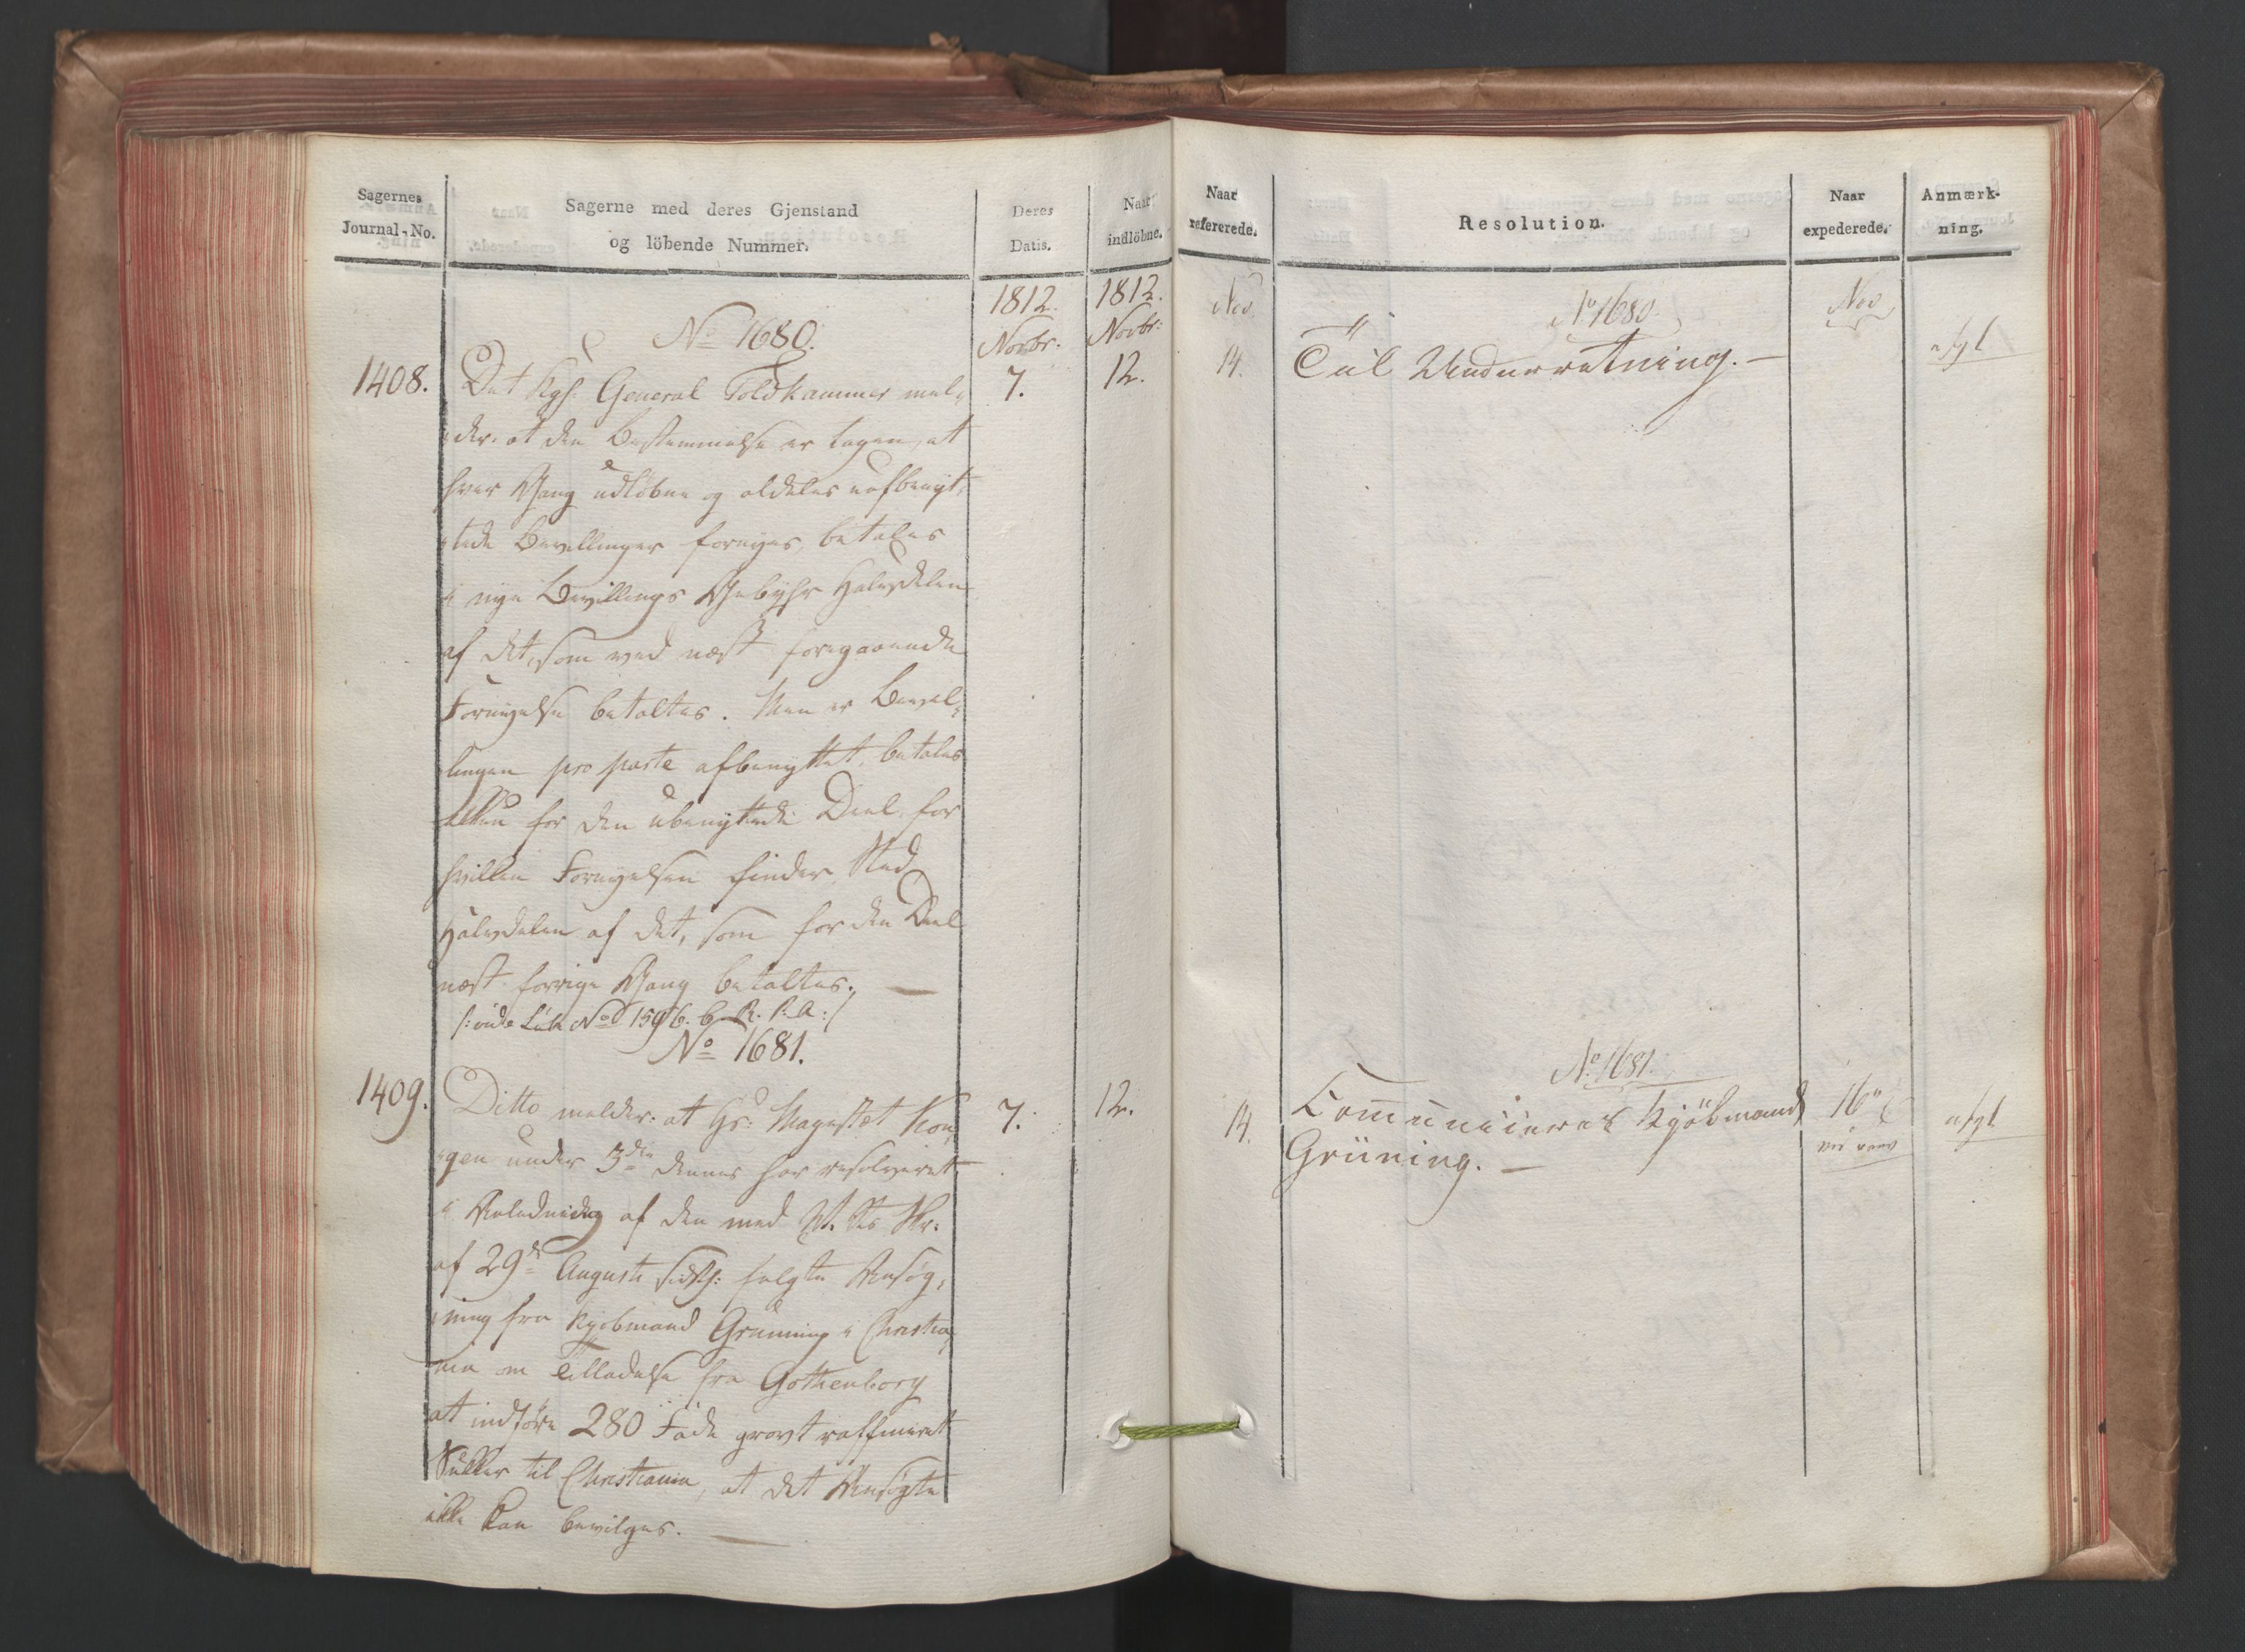 Sagernes
Journal-No.
Sagerne med deres Gjenstand
og löbende Nummer.
Deres
Datis.
Naar
indlöbne.
1812.
Novbr.
1812.
Novbr:
No 1680.
1408.
7.
12.
Det Kgl: General Toldkammer mel-
der: at den Bestemmelse er tagen, at
hver Gang udløbne og aldeles uafbenyt-
tede Bevillinger fornyes, betales
i nye Bevillings Gebyhr Halvdelen
af det, som ved næst foregaaende
Fornyelse betaltes. Men er Bevil-
lingen pro parte afbenyttet, betales
for den ubenyttede Deel, for
hvilken Fornyelsen finder Sted,
Halvdelen af det, som for den Deel
næst forrige Gang betaltes. —
No 1681.
1409.
7.
12.
Ditto melder: at Hs: Majestæt Kon-
gen under 3die dennes har resolveret
i Anledning af den med
af 29de Augusti sidstl: fulgte Ansøg-
ning fra Kjøbmand Grüning i Christia-
nia om Tilladelse fra Gothenborg
at indføre 280 Fade grovt raffineret
Sukker til Christiania, at det Ansøgte
ikke kan bevilges. —
Naar
refererede.
Resolution.
Naar
expederede.
Anmærk-
ning.
Nov.
No 1680.
Nov
14.
Til Underretning. —
No 1681.
14.
Communiceres Kjöbmand
Grüning. —
16